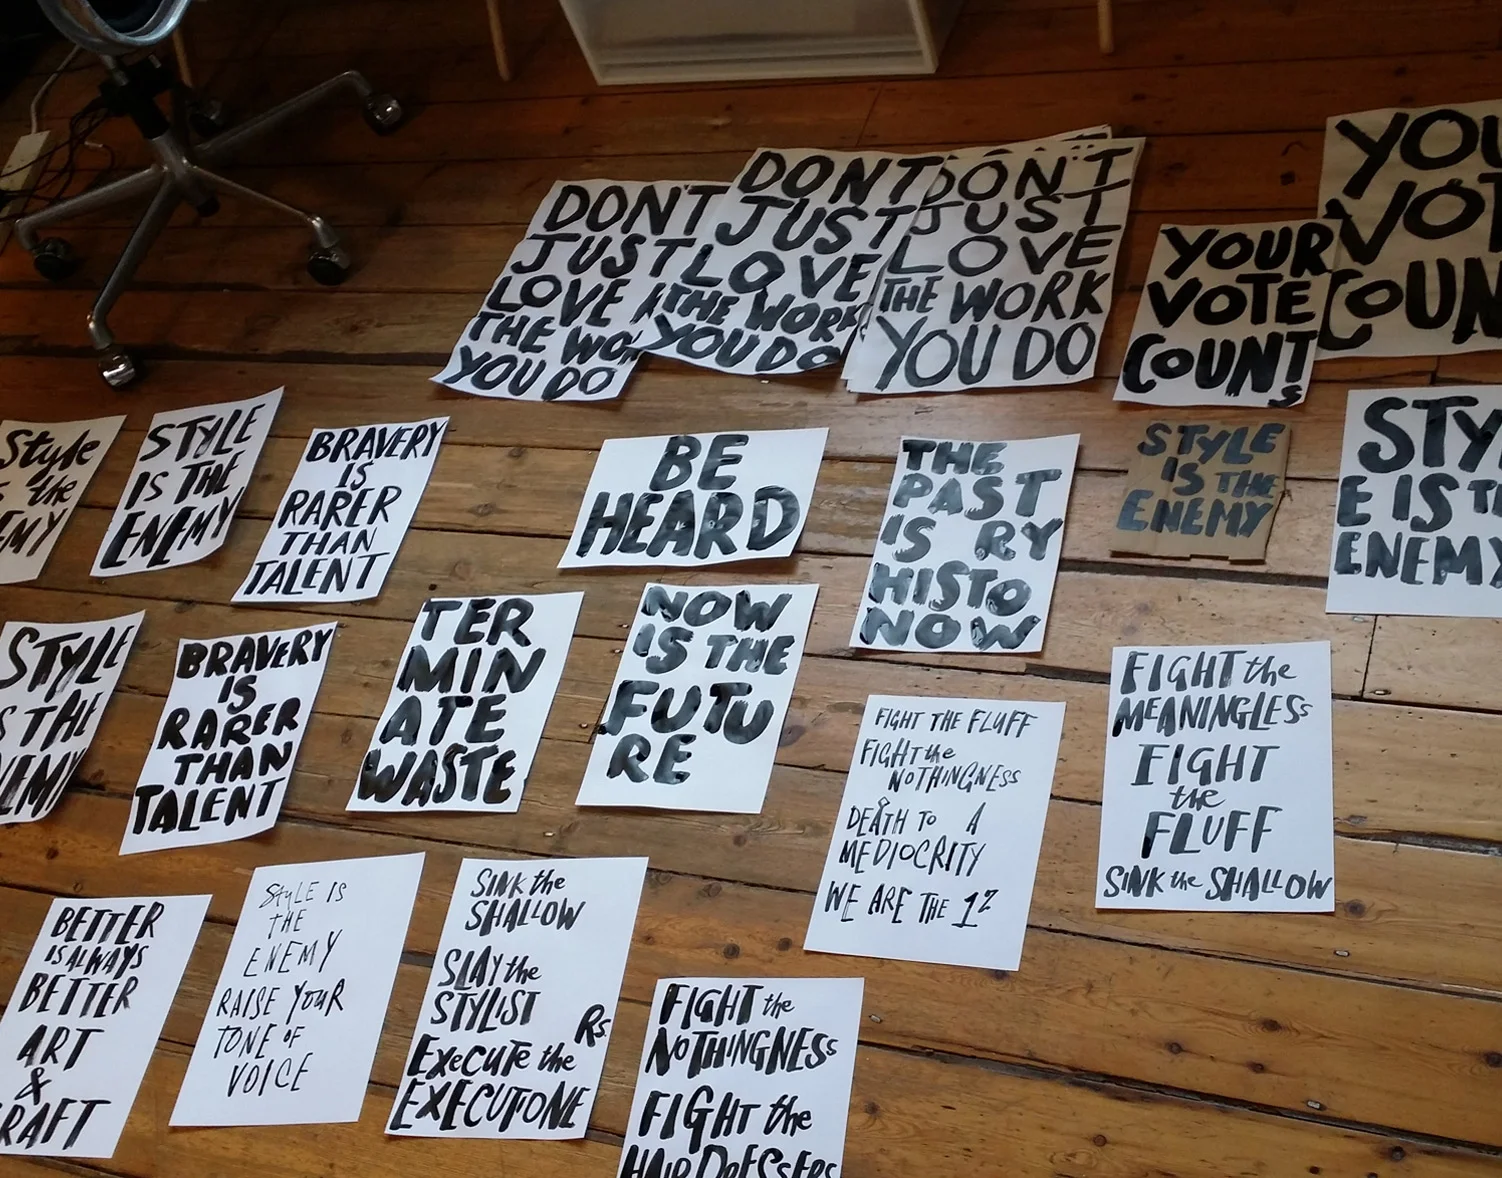 DON'T
JUST
LOVE
THE WO
YOU DO
DON'T
JUST
LOVE
THE WORK
YOU DO
DON'T
JUST
LOVE
THE WORK
YOU DO
YOUR
VOTE
COUNTS
YOU
VOT
COUN
Style
the
EMY
STYLE
IS THE
ENEMY
BRAVERY
IS
RARER
THAN
TALENT
BE
HEARD
THE
PAST
IS RY
HISTO
NOW
STYLE
IS THE
ENEMY
STY
E IS TH
ENEMY
STYLE
S THE
NEMY
BRAVERY
IS
RARER
THAN
TALENT
TER
MIN
ATE
WASTE
NOW
IS THE
FUTU
RE
FIGHT THE FLUFF
FIGHT the
NOTHINGNESS
DEATH TO A
MEDIOCRITY
WE ARE THE 12
FIGHT the
MEANINGLESS
FIGHT
the
FLUFF
SINK the SHALLOW
BETTER
IS ALWAYS
BETTER
ART
&
RAFT
STYLE IS
THE
ENEMY
RAISE YOUR
TONE OF
VOICE
SINK the
SHALLOW
SLAY the
STYLIST
Rs
EXECUTE the
EXECUTIONE
FIGHT the
NOTHINGNESS
FIGHT the
HAIRDRESSERS